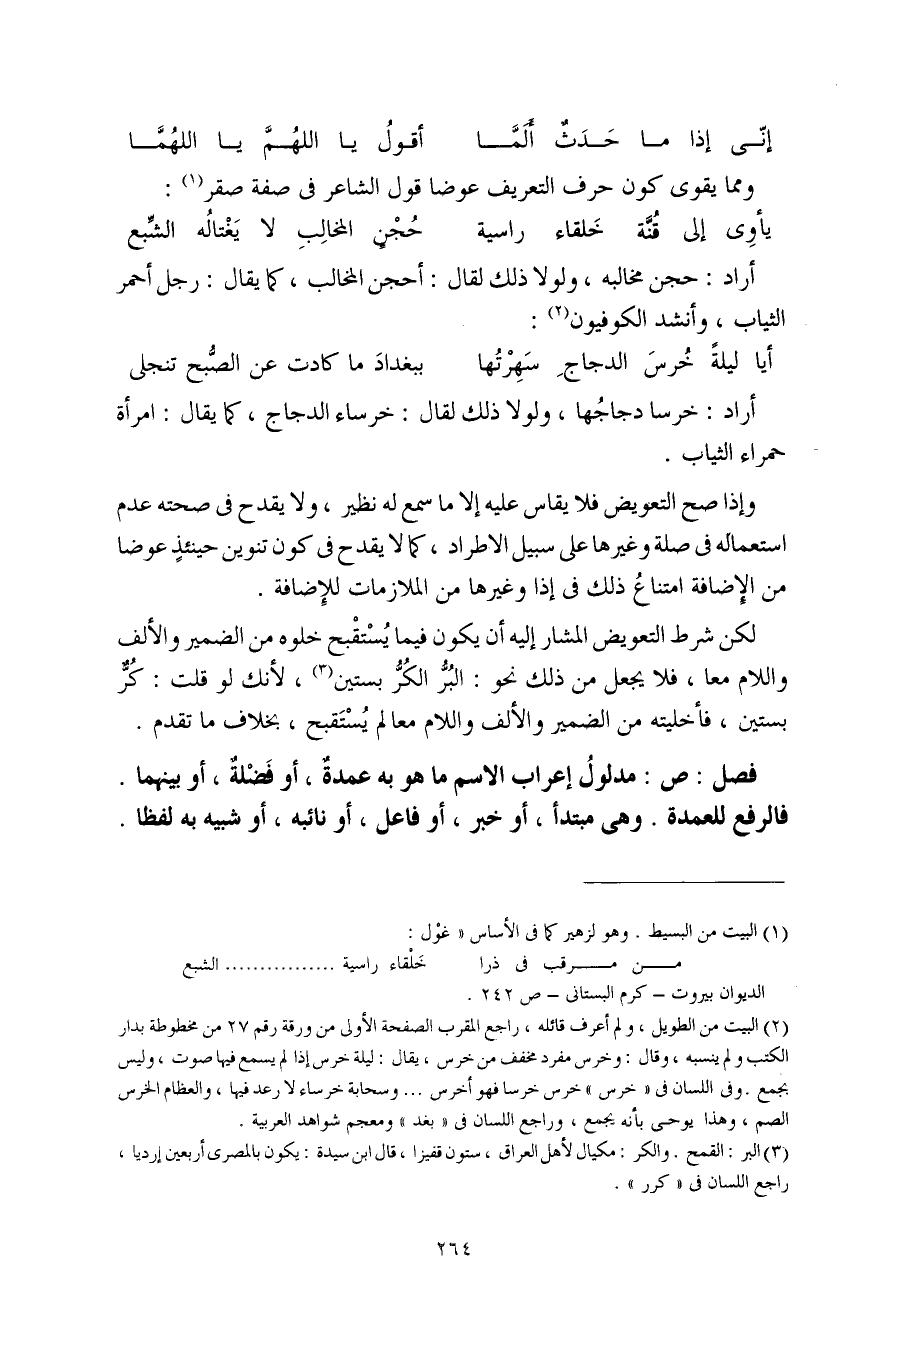 إنّـى إذا مـا حَـدَثٌ أَلَمَّـا أقـولُ يـا اللهُـمَّ يـا اللهُمَّـا
ومما يقوى كون حرف التعريف عوضا قول الشاعر فى صفة صقر(١) :
يأوِى إلى قُنَّة خَلقاء راسية حُجْنِ المخالِبِ لا يَغْتالُه الشِّبع
أراد : حجن مخالبه ، ولولا ذلك لقال : أحجن المخالب ، كما يقال : رجل أحمر
الثياب ، وأنشد الكوفيون(٢) :
أيا ليلةً خُرسَ الدجاجِ سَهِرْتُها ببغدادَ ما كادت عن الصُّبح تنجلى
أراد : خرسا دجاجُها ، ولولا ذلك لقال : خرساء الدجاج ، كما يقال : امرأة
حمراء الثياب .
وإذا صح التعويض فلا يقاس عليه إلا ما سمع له نظير ، ولا يقدح فى صحته عدم
استعماله فى صلة وغيرها على سبيل الاطراد ، كما لا يقدح فى كون تنوين حينئذٍ عوضا
من الإضافة امتناعُ ذلك فى إذا وغيرها من الملازمات للإضافة .
لكن شرط التعويض المشار إليه أن يكون فيما يُسْتقْبح خلوه من الضمير والألف
واللام معا ، فلا يجعل من ذلك نحو : البُرُّ الكُرُّ بستين(٣) ، لأنك لو قلت : كُرٌّ
بستين ، فأخليته من الضمير والألف واللام معا لم يُسْتَقبح ، بخلاف ما تقدم .
فصل : ص : مدلولُ إعراب الاسم ما هو به عمدةٌ ، أو فَضْلةٌ ، أو بينهما .
فالرفع للعمدة . وهى مبتدأ ، أو خبر ، أو فاعل ، أو نائبه ، أو شبيه به لفظا .
(١) البيت من البسيط . وهو لزهير كما فى الأساس « غوْل :
مـــن مــــرقب فى ذرا خَلْقاء راسية ................ الشبع
الديوان بيروت – كرم البستانى – ص ٢٤٢ .
(٢) البيت من الطويل ، ولم أعرف قائله ، راجع المقرب الصفحة الأولى من ورقة رقم ٢٧ من مخطوطة بدار
الكتب ولم ينسبه ، وقال : وخرس مفرد مخفف من خرس ، يقال : ليلة خرس إذا لم يسمع فيها صوت ، وليس
بجمع . وفى اللسان فى « خرس » خرس خرسا فهو أخرس ... وسحابة خرساء لا رعد فيها ، والعظام الخرس
الصم ، وهذا يوحى بأنه يجمع ، وراجع اللسان فى « بغد » ومعجم شواهد العربية .
(٣) البر : القمح . والكر : مكيال لأهل العراق ، ستون قفيزا ، قال ابن سيدة : يكون بالمصرى أربعين إردبا ،
راجع اللسان فى « كرر » .
٢٦٤